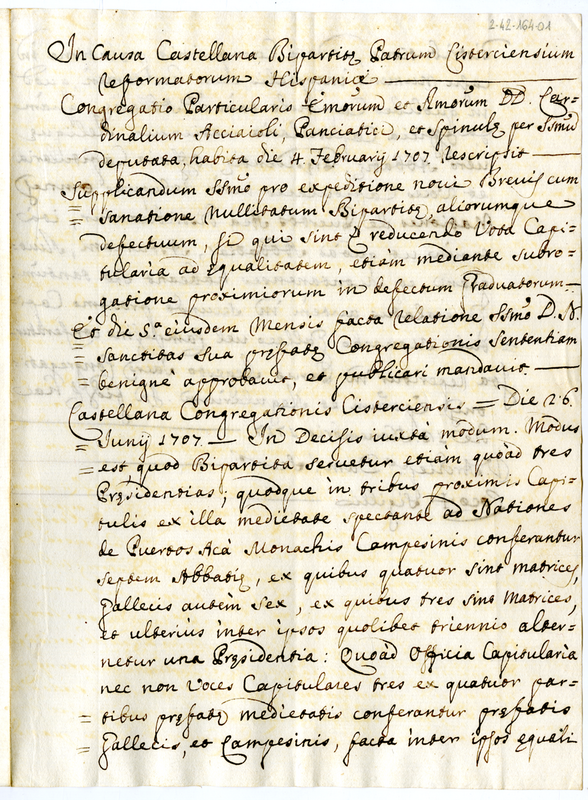 2-42-164-01
In Causa Castellana Bipartitę Patrum Cisterciensium
reformatorum Hispanię
Congregatio Particularis Emorum et Rmorum DD. Car-
dinalium Acciaioli, Panciatici, et Spinulę per Ssmũ
deputata, habita die 4. February 1707. rescripsit
Supplicandum Ssmo pro expeditione novi Brevis cum
= sanatione nullitatum Bipartitę, aliorumque
defectuum, si qui sint reducendo Vota Capi-
tularia ad Equalitatem, etiam mediante subro-
gatione proximiorum in defectum Graduatorum.
Et die 5.a eiusdem Mensis facta relatione Ssmo D. N.
= Sanctitas sua pręfatę Congregationis sententiam
= benignè approbavit, et publicari mandavit.
Castellana Congregationis Cisterciensis = Die 26.
= Junij 1707. — In Decisis iuxtà modum. Modus
= est quod Bipartita servetur etiàm quoàd tres
Pręsidentias; quodque in tribus proximis Capi-
tulis ex illa medietate spectante ad Nationes
de Puertos Acà Monachis Campesinis conferantur
septem Abbatię, ex quibus quatuor sint matrices,
Gallecis autèm sex, ex quibus tres sint matrices,
et ulterius inter ipsos quolibet triennio alter-
netur una Pręsidentia: Quoàd Officia Capitularia
nec non Voces Capitulares tres ex quatuor par-
= tibus pręfatę medietatis conferantur pręfatis
= Gallecis, et Campesinis, facta inter ipsos ęquali